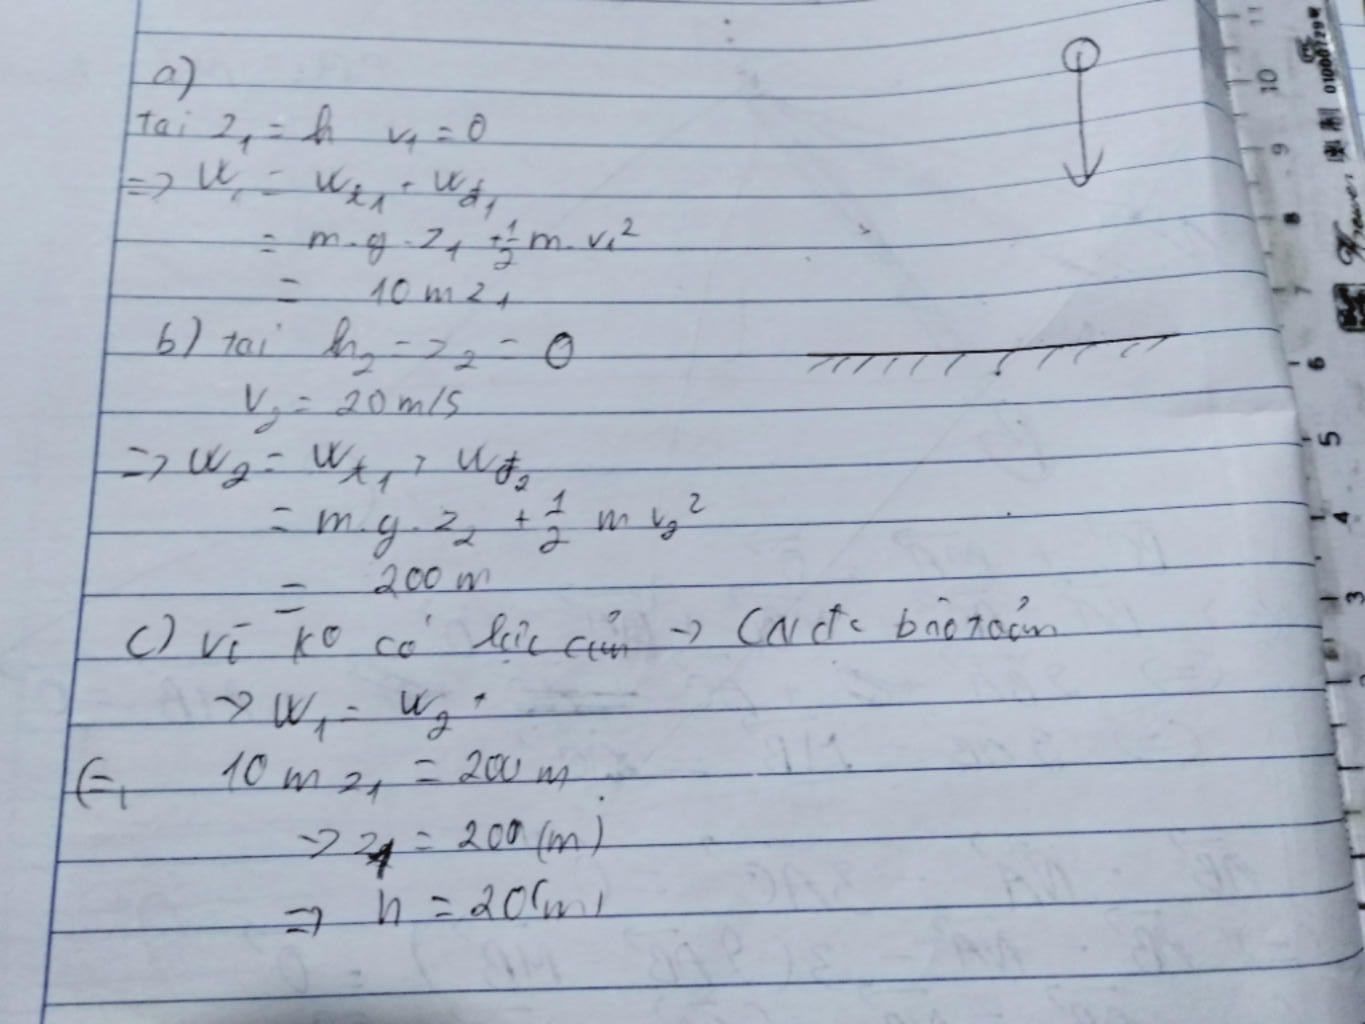 a)
tại z₁ = h v₁ = 0
=> W₁ = Wt₁ + Wđ₁
= m.g.z₁ + 1/2 m.v₁²
= 10 m z₁
b) tại h₂ = z₂ = 0
v₂ = 20 m/s
=> W₂ = Wt₁ + Wđ₂
= m.g.z₂ + 1/2 m v₂²
= 200 m
c) vì ko có lực cản → CN đc bảo toàn
→ W₁ = W₂
10 m z₁ = 200 m
→ z₁ = 20 (m)
=> h = 20 (m)
11
10
9
8
7
6
5
4
3
2
01000729